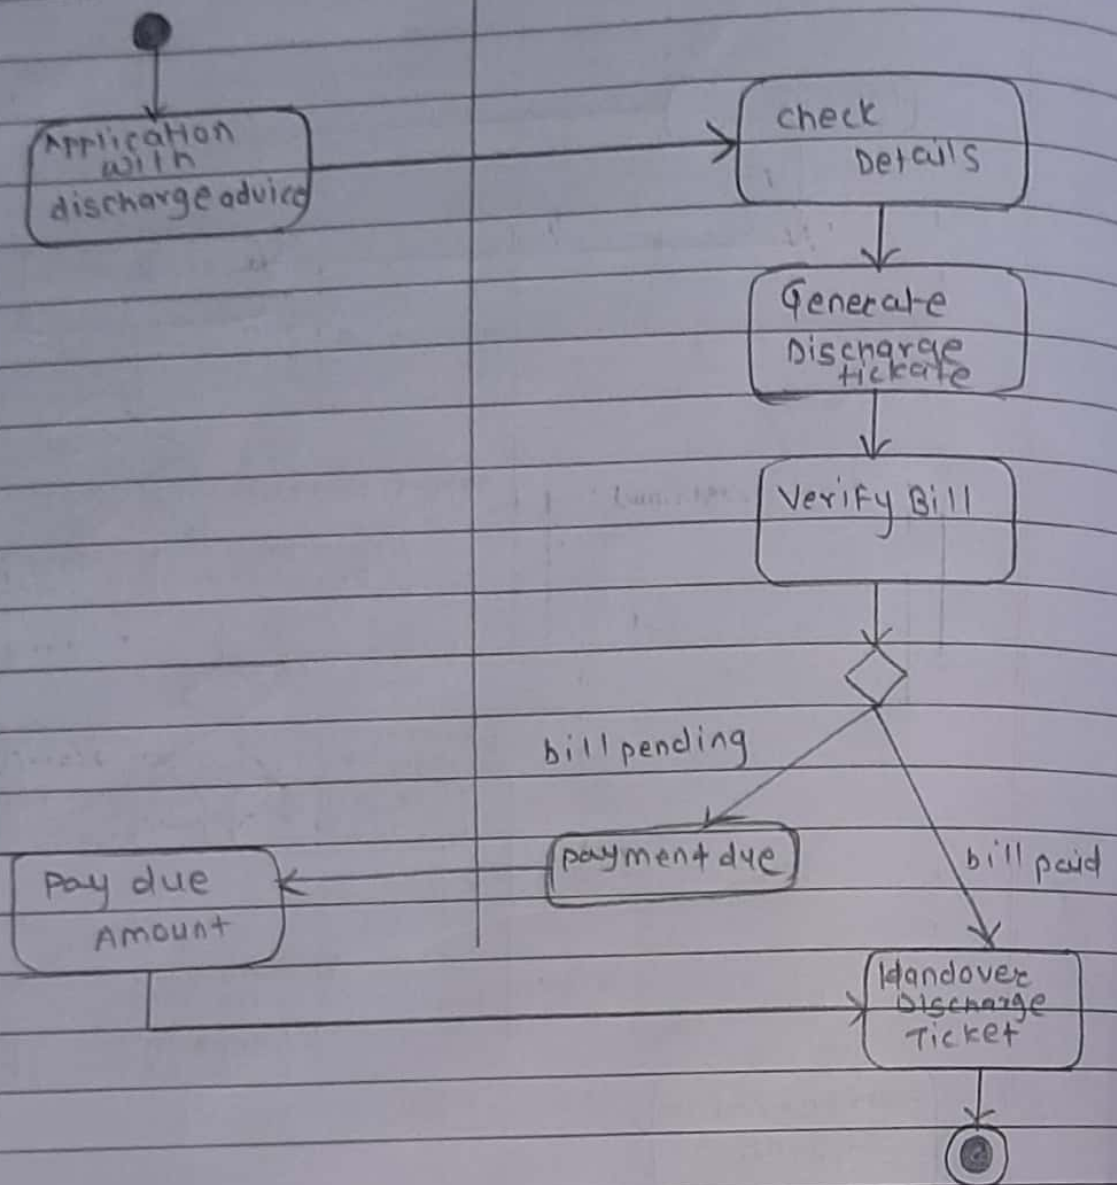 Application
with
discharge advice
check
Details
Generate
Discharge
tickate
Verify Bill
bill pending
payment due
bill paid
Pay due
Amount
Handover
Discharge
Ticket